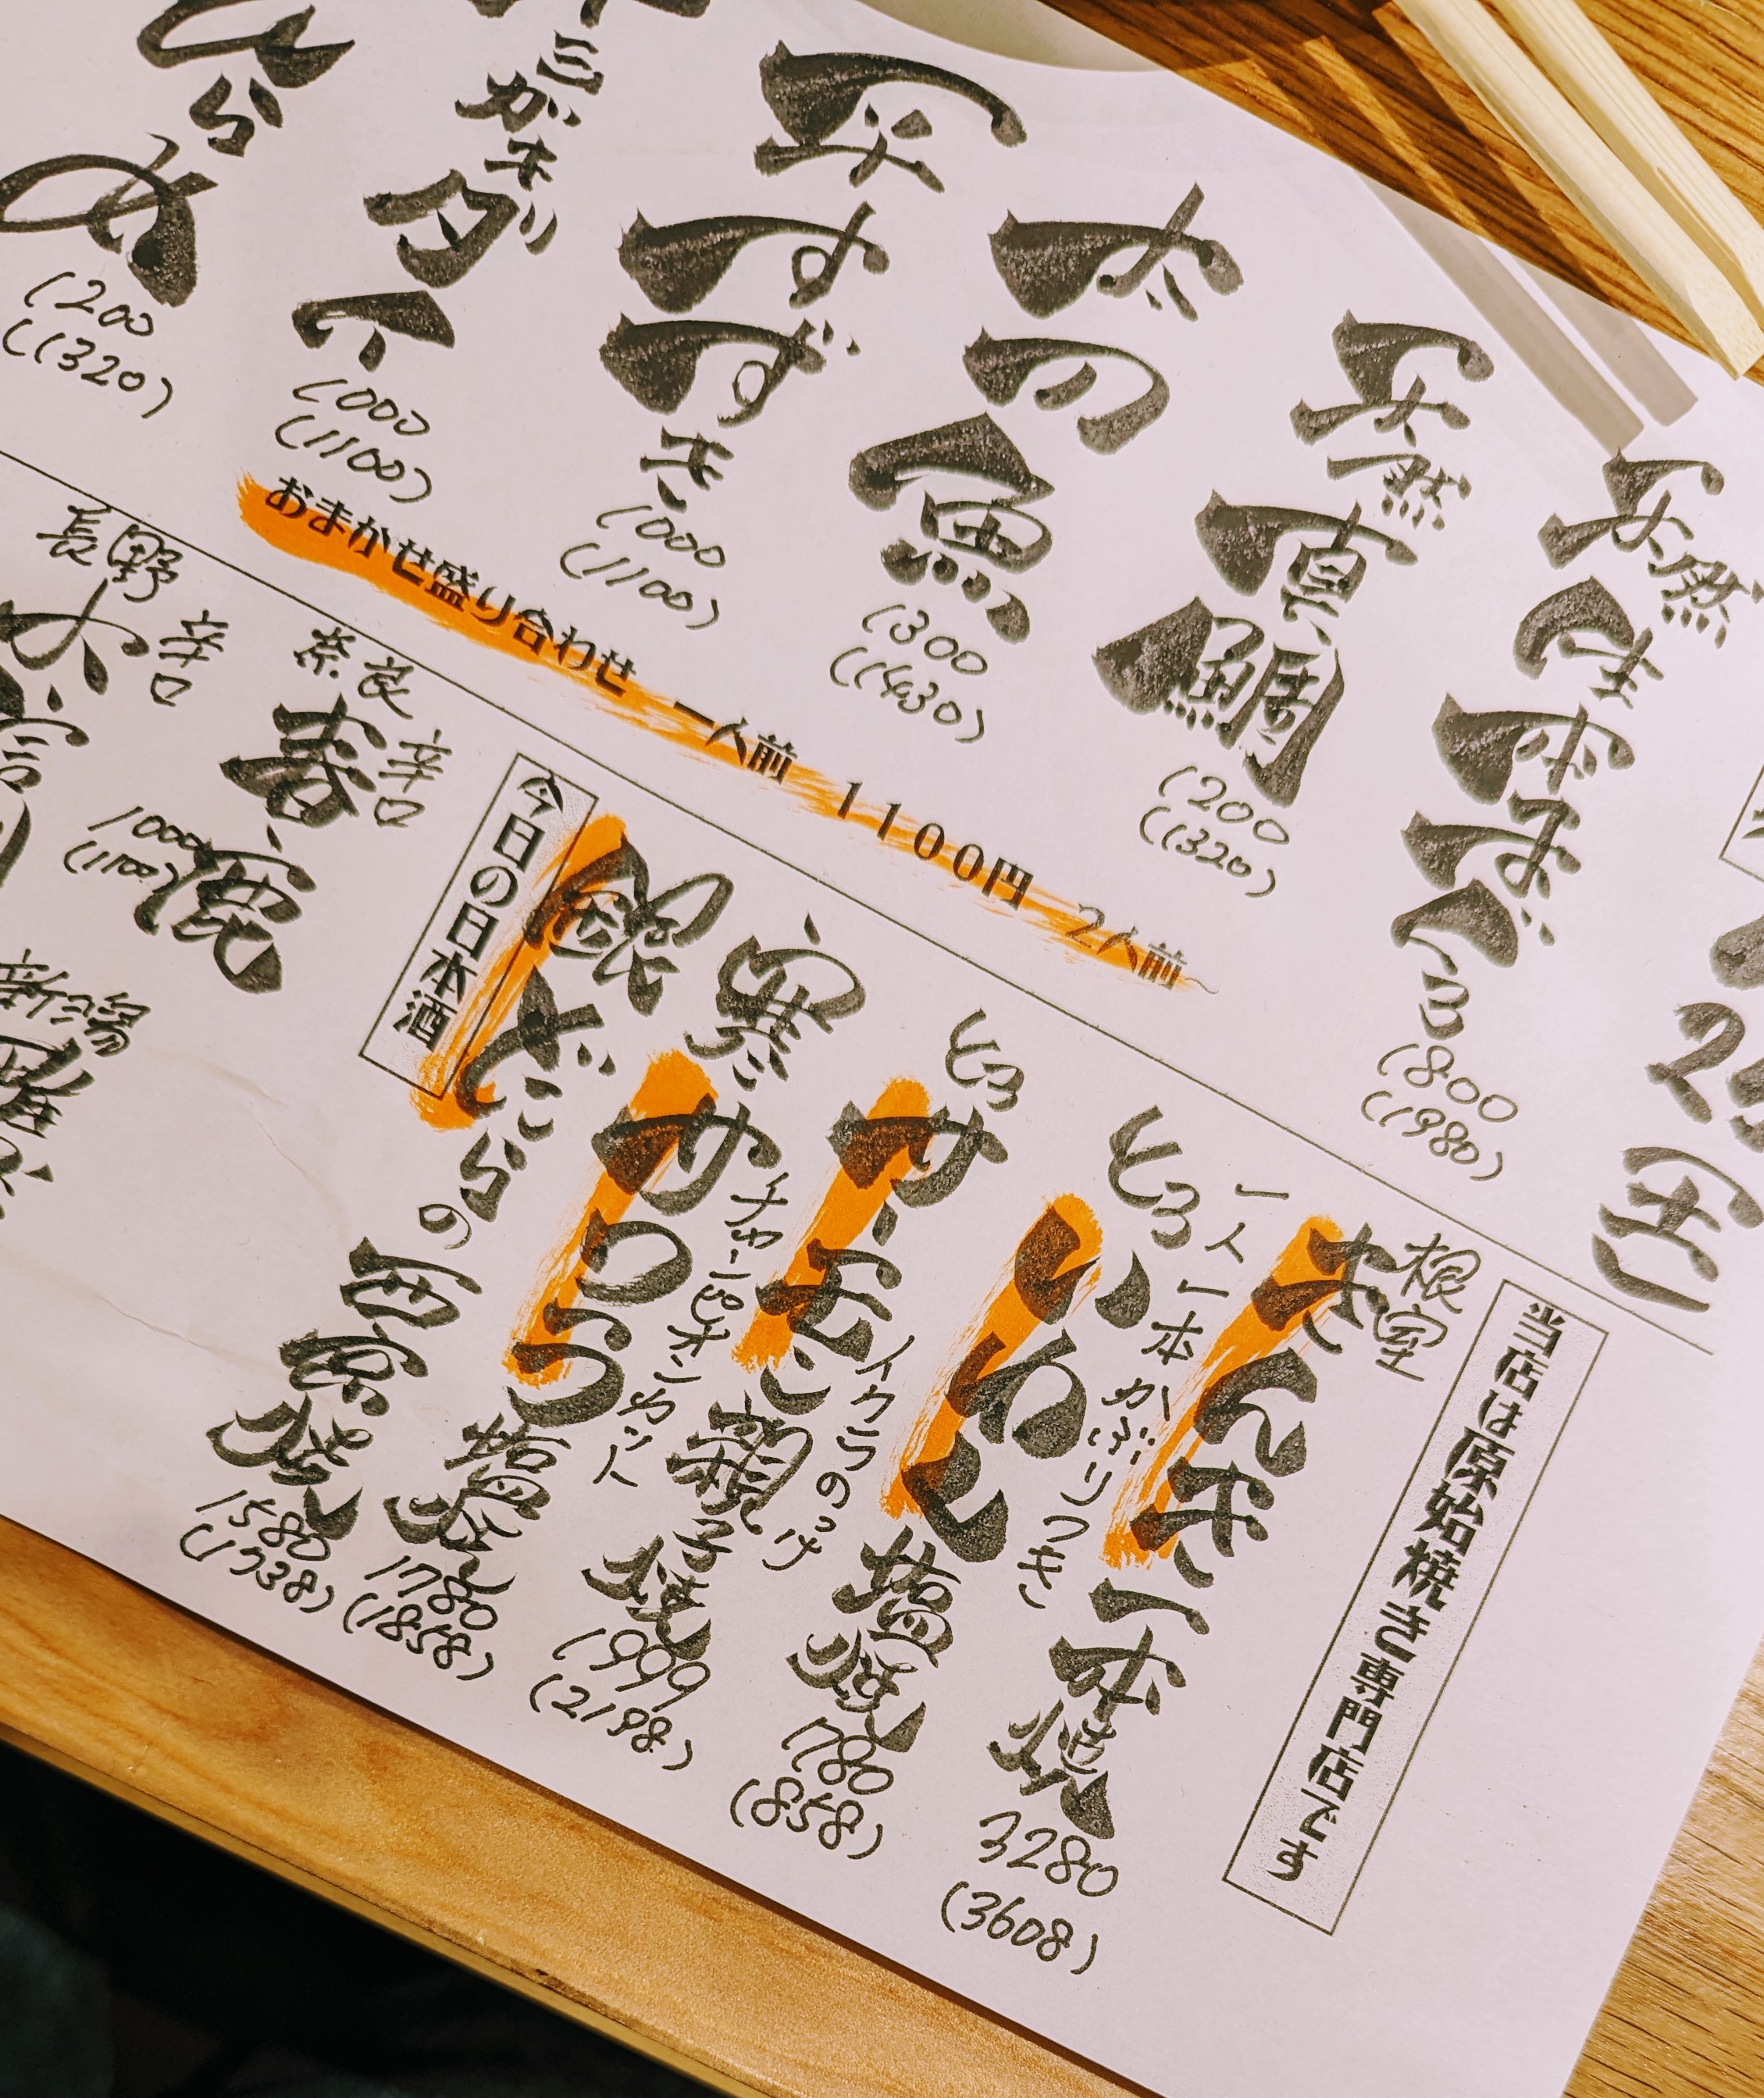 天然
生
1800
(1980)
天然
真鯛
1200
(1320)
ボの魚
1300
(1430)
平
すずき
1000
(1100)
三かキリ
タイ
1000
(1100)
ひらめ
1200
(1320)
おまかせ盛り合わせ 一人前 1100円 2人前〜
当店は原始焼き専門店です
根室
きんき一本焼
3280
(3608)
一人一本かぶりつき
とろいわし塩焼
780
(858)
とろサーモン親子焼
イクラのっけ
1999
(2198)
寒サワラ塩焼
チャンピオンカット
1780
(1858)
銀だらの西京焼
1580
(1738)
今日の日本酒
奈良
辛口
春鹿
1000
(1100)
長野
辛口
水
新潟